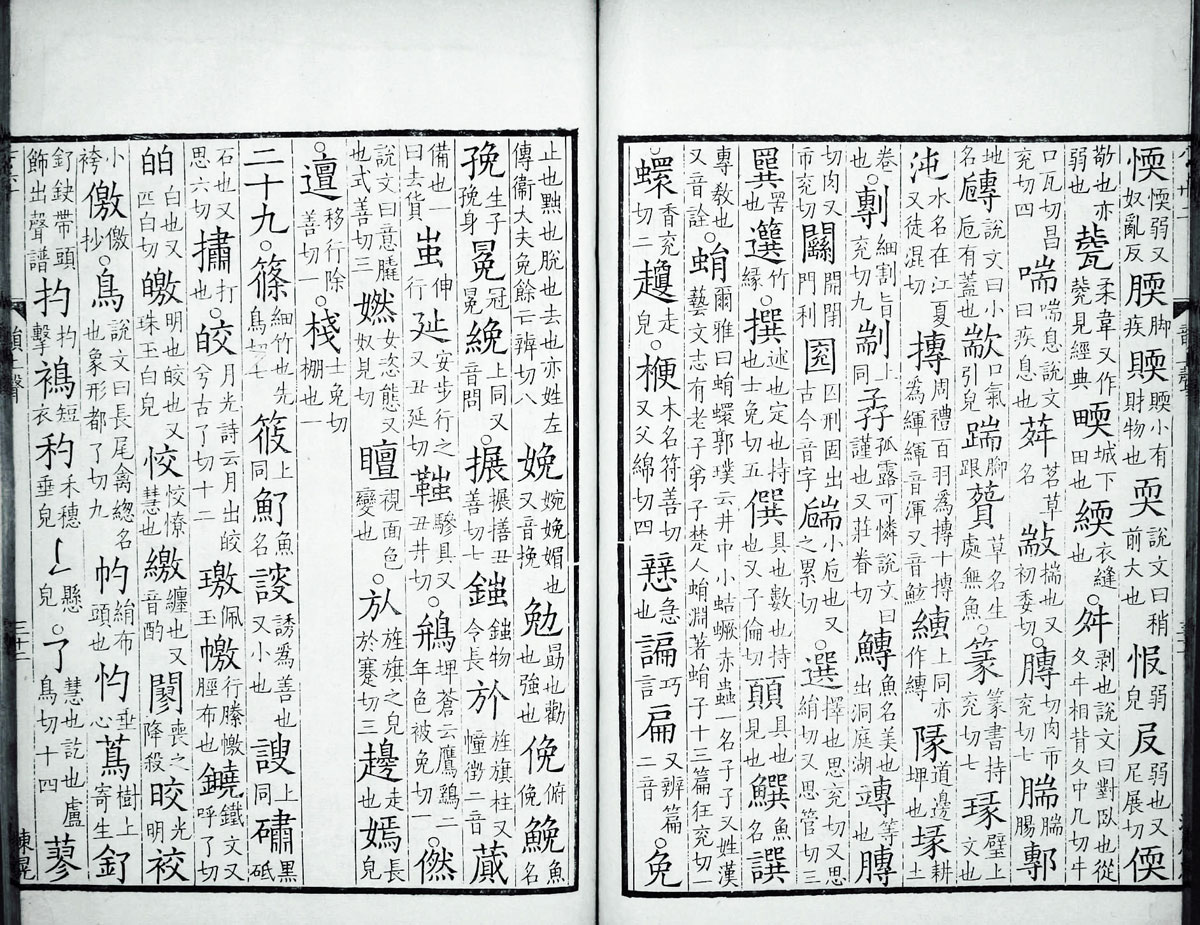 愞愞弱又奴亂反腝脚疾小有財物也耎說文曰稍前大也弱皃㞋弱也又尼展切偄
敬也亦弱也柔韋又作見經典城下田也緛衣縫也○舛剥也說文曰對臥也從夊㐄相背夊中几切㐄
口瓦切昌兖切四喘喘息說文曰疾息也荈茗草名㪜揣也又初委切○膞切肉市兖切七腨腨腸鄟
地名說文曰小巵有蓋也歂口氣引皃踹脚跟草名生處無魚○篆篆書持兖切七瑑璧上文也
沌水名在江夏又徒混切摶周禮百羽爲摶十摶爲緷緷音渾又音鯀縳上同亦作縛隊道邊埤也耕土
卷上也○剸細割旨兖切九剬上同孨孤露可憐說文曰謹也又莊眷切鱄魚名美也出洞庭湖竱等也膞
切肉又市兖切開閉門利囚刑固出古今音字小巵也又之累切○選擇也思兖切又思絹切又思管切三
罟竹緣○撰述也定也持也士免切五僎具也數也持也又子倫切顨具也見也魚名譔
專教也又音詮○蜎爾雅曰蜎蠉郭璞云井中小蛣蟩赤蟲一名孑孑又姓漢藝文志有老子弟子楚人蜎淵著蜎子十三篇狂兖切一
○蠉香兖切二走皃○楩木名符善切又父綿切四急也諞巧言扁又辨篇二音○免
止也黜也脫也去也亦姓左傳衞大夫免餘云辨切八娩婉娩媚也又音挽勉勗也勸也強也俛俯俛鮸魚名
㝃生子㝃身冕冠冕絻上同又音問○搌丑善切七物令長㫃旌旗柱又幢徵二音蕆
備也一曰去貨伸行㢟安步行之又丑延切驂具又丑井切○埤蒼云鷹鷂二年色被免切一○
說文曰意膬也式善切三女恣態又奴見切視面色變也○㫃旌旗之皃於蹇切三走也嫣長皃
○邅移行除善切一○棧棚也士免切一
二十九○篠細竹也先鳥切七筱上同魡魚名謏誘爲善也又小也上同黑砥
石也又思六切打也○皎月光詩云月出皎兮古了切十二璬佩玉行縢脛布也鐃鐵文又呼了切
白也又匹白切皦明也皎也又珠玉白皃恔恔憭慧也繳纏也又音酌喪之降殺晈光明
小袴儌儌抄○鳥說文曰長尾禽緫名也象形都了切九絹布頭也垂心蔦樹上寄生釕
帶頭飾出聲譜扚扚擊短衣禾穗垂皃懸皃○了慧也訖也盧鳥切十四蓼
三十二